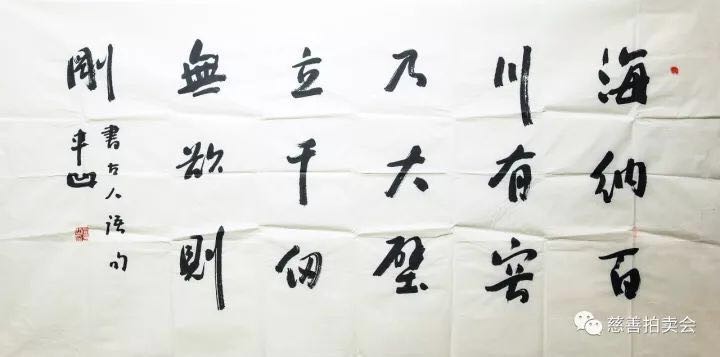 海納百
川有容
乃大壁
立千仞
無欲則
剛
書古人語句
平凹
慈善拍卖会